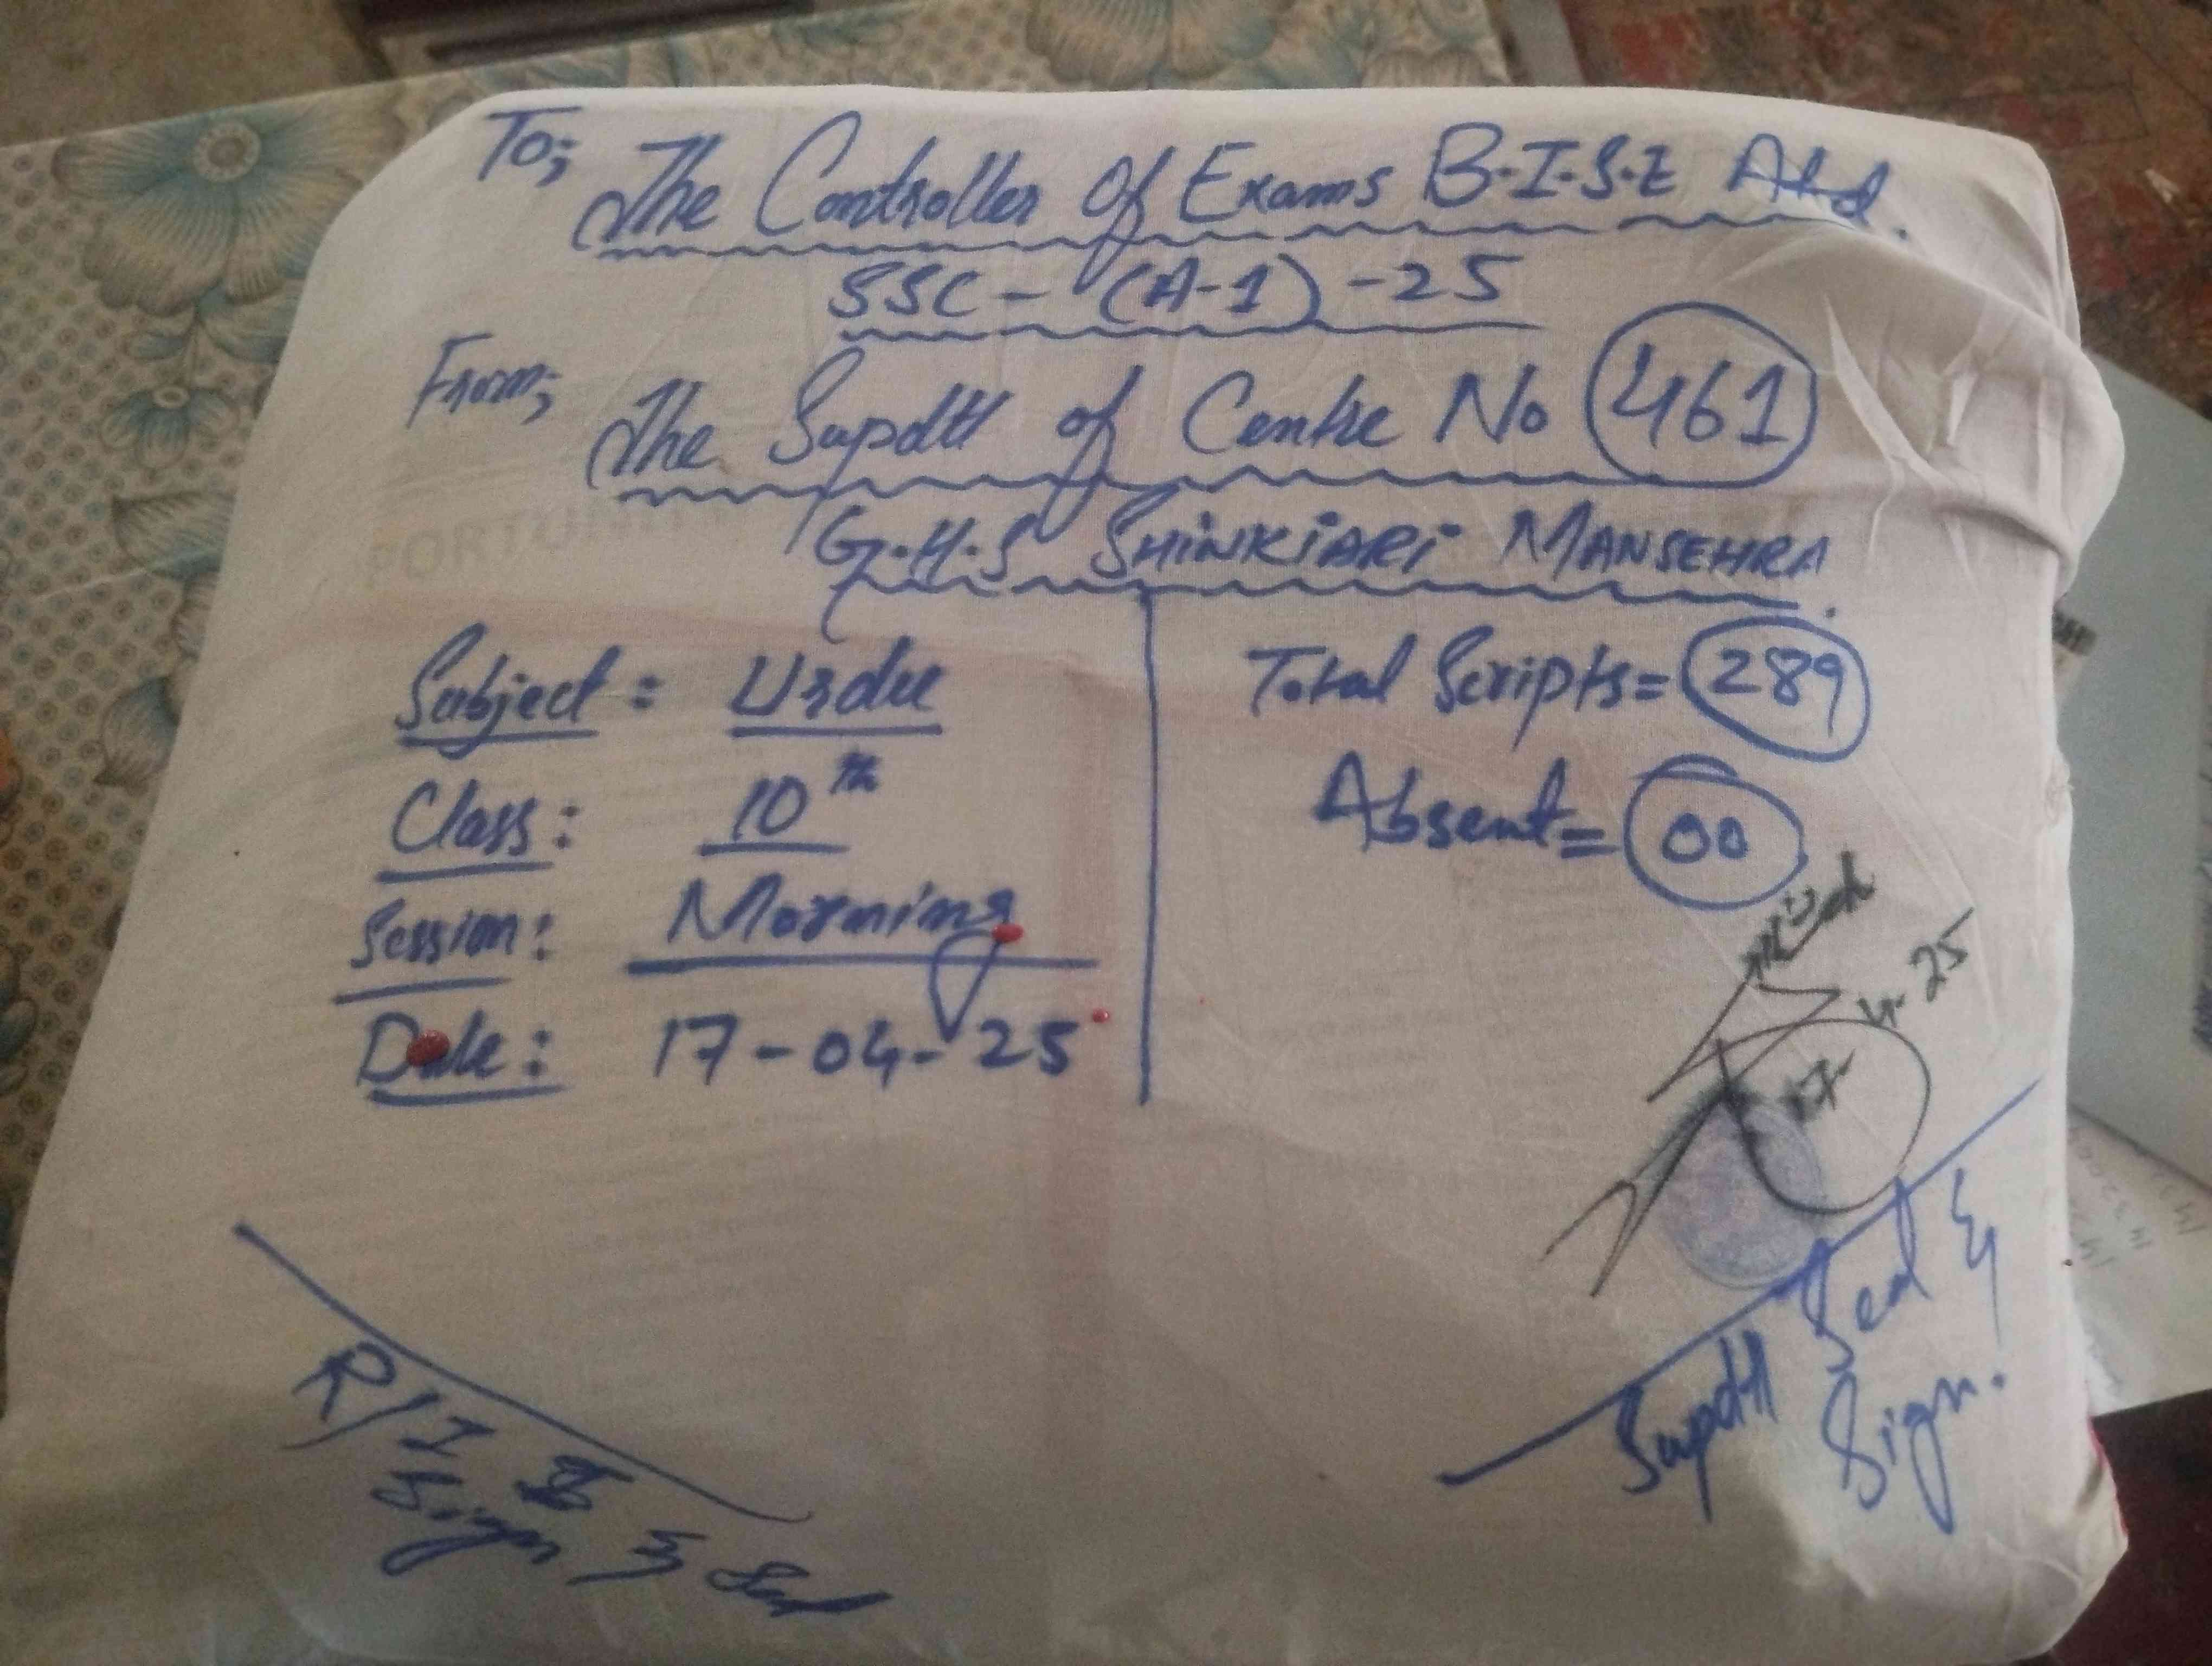 To;
The Controller Of Exams B.I.S.E Atd.
SSC - (A-1) - 25
From;
The Supdtt of Centre No 461
G.H.S SHiNKiARi MANSEHRA.
Subject : Urdu
Class : 10th
Session : Morning
Date : 17-04-25
Total Scripts = 289
Absent = 00
17-4-25
Supdtt Seal &
Sign.
R/I
Sign & Seal
PORTUNI